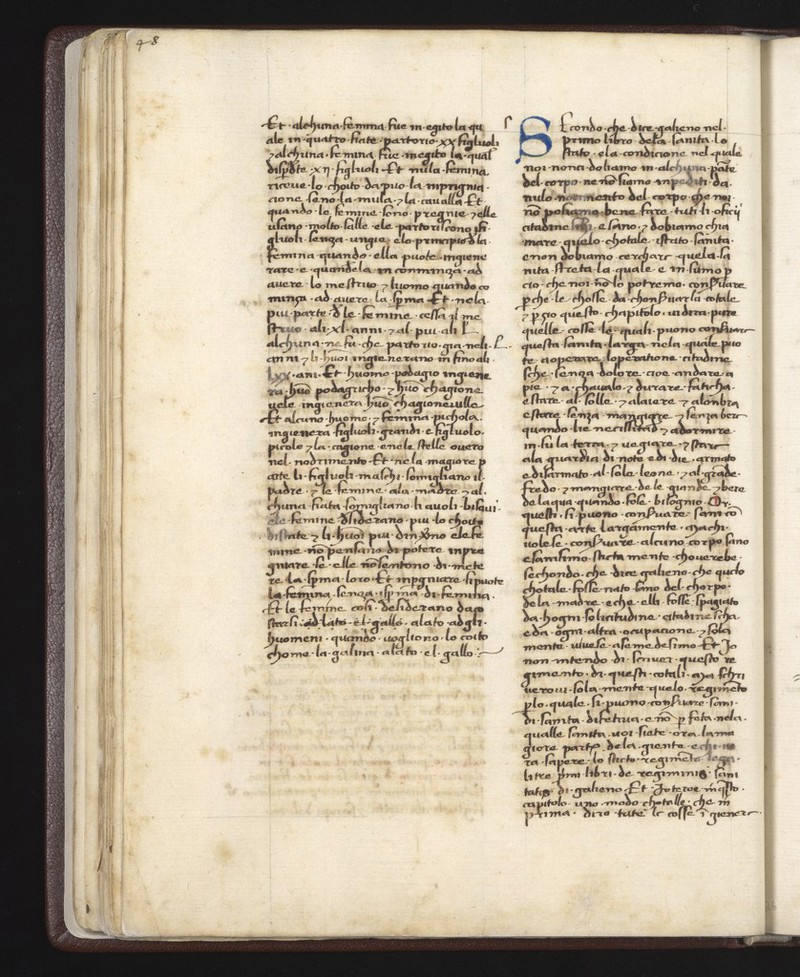 48
Et · alchuna · femina · fue · in · egito · la · qu
ale in · quatro · fiate · partorio · xx figliuoli
⁊ alchuna · femina · fue · in egito la · qual
figliuoli · Et · nula · femina
riceue · lo · choito · da puo · la inprignia
cione · seno · la · mula · ⁊ la · caualla · Et
quando · le femine · sono · pregnie · ⁊ elle
usano · molto · salle · ele · partoriscono · fi
gluoli · senza · ungie · elo · principio dla
femina · quando · ella puote · ingiene
rare · e · quando la in comminza · ad
auere · lo mestruo · ⁊ luomo quando co
minza · ad auere · la spma · Et · nela ·
piu · parte · de le femine · cessa il me
struo · ali · xl · anni · ⁊ al · piu · ali · L ·
alchuna · ne fu · che partorio · gia · neli · L ·
anni ⁊ li · huoi ingienerano · in fino ali ·
lxx · ani · Et · huomo · podagro ingiene
ra · huō podagricho · ⁊ huō · chagione
uele · ingienera huō · chagioneuille
Et alcuno · huomo · ⁊ femina · pichola ·
ingienera figluoli · grandi · e figluolo ·
picolo ⁊ la · cagione · enele stelle ouero
nel · nodrimento · Et · nela · magiore p
arte · li · figluoli · maschi · somigliano il ·
padre · ⁊ le femine · ala · madre ⁊ al ·
chuna · fiata somigliano · li auoli · bisaui ·
ele · femine · desiderano piu · lo choito
distate · ⁊ li · huōi piu · dinūno ele fe
mine · nō pensano · di potere inpre
gniare · se · elle nō sentono · di · mete
re · la · spma · loro · Et inpgniare · si puote
la · femina · senza · spma · di femina ·
Et le femine cosi · desiderano
starsi · ad lato · el · gallo · alato · adgli ·
huomeni · quando · uogliono · lo coito
chome · la · galina · alato · el · gallo ·
Secondo · che · dice · galieno nel ·
primo libro dela · sanita · lo
stato · ela · condicione nel quale
noi · nonci · doliamo · in · alchuna · pāte
del · corpo · ne nō siamo inpediti · da ·
nulo · mouimento del corpo che noi ·
nō posiamo · bene fare · tuti · li · oficij
citadineschi · e sano · ⁊ dobiamo chia
mare · quelo · chotale · istato · sanita ·
e non dobiamo cerchare · quela · sa
nita · streta · la · quale · e in sumo p
cio · che noi · nō · lo potremo · conseruare
pche · le · chosse · da · chonseruarla cotale
⁊ p cio questo · chapitolo · pure
quelle · cosse le · quali · puono conseruare
questa sanita · larga · nela · quale puo
te aoperare loperatione · citadine
sche · senza · dolore · cioe andare a
pie · ⁊ a chaualo · ⁊ durare faticha ·
e stare · al · solle · ⁊ alaiere ⁊ alonbra
e stare · senza · mangiare ⁊ senza bere
quando lie · necissitad ⁊ adormire ·
in su la terra · ⁊ uegiare · ⁊ stare
ala · quardia · di note · e di · die · armato
e disarmato · al · sole · leone · ⁊ al · grāde ·
fredo · ⁊ mangiare · de le giande ⁊ bere
de laqua · quando · fose · bisognio · Or ·
questi · si puono · conseruare · sani · cō
questa · arte · largamente · Machi ·
uolese · conseruare · alcuno · corpo sano
e sanisimo · sticta mente · chouerebe ·
sechondo · che · dice galieno · che quelo
chotale · fosse · nato · sano · del · chorpo ·
de la · madre · e che · elli · fosse · spagiato
da · hogni · solicitudine · citadinescha ·
e da · ogni · altra · ocupacione · ⁊ sola
mente · uiuese · asemedesimo · Et Jo
non intendo · di · scriuer · questo re
gimento · di · questi · cotali · Ma schri
uerouı · sola · mente · quelo · regimēto
plo · quale · si puono · conseruare · sani ·
di · sanita · difetiua · e nō p feta · nela ·
qualle · sanita · uoi · siate · ora · la ma
giore · parte · dela · giente · e chi · uo
ra · sapere · lo sticto · regimēto · lega ·
li tre · pmi · libri · de regiminis · sani
tatis · di · galieno · Et · Jo in · questo ·
capitolo · uno · modo · chotalle · che in
prima · diro · tute · le cosse ī giener